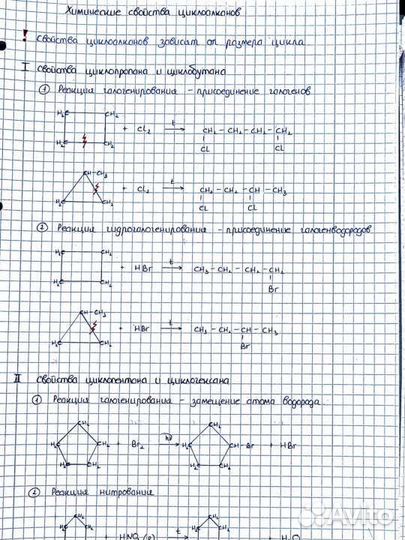 Химические свойства циклоалканов
! Свойства циклоалканов зависят от размера цикла
I Свойства циклопропана и циклобутана
① Реакции галогенирования - присоединение галогенов
H₂C CH₂
H₂C CH₂ + Cl₂ t → CH₂ - CH₂ - CH₂ - CH₂
Cl Cl
CH - CH₃
H₂C CH₂ + Cl₂ t → CH₂ - CH₂ - CH - CH₃
Cl Cl
② Реакции гидрогалогенирования - присоединение галогенводородов
H₂C CH₂
H₂C CH₂ + HBr t → CH₃ - CH₂ - CH₂ - CH₂
Br
CH - CH₃
H₂C CH₂ + HBr t → CH₃ - CH₂ - CH - CH₃
Br
II Свойства циклопентана и циклогексана
① Реакции галогенирования - замещение атома водорода
CH₂ CH₂
H₂C CH₂ + Br₂ hν → H₂C CH - Br + HBr
H₂C CH₂ H₂C CH₂
② Реакция нитрования
CH₂ CH₂
H₂C CH₂ + HNO₃ t → H₂C + H₂O
Avito